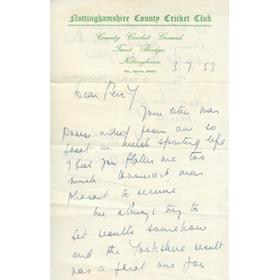 Nottinghamshire County Cricket Club
County Cricket Ground,
Trent Bridge,
Nottingham.
3.7.53
Dear Percy
Your letter was
praise indeed from one so
great in Welsh sporting life
I feel you flatter me too
much however it was
pleasant to receive.
We always try to
get results somehow
and the Yorkshire result
was a great one for